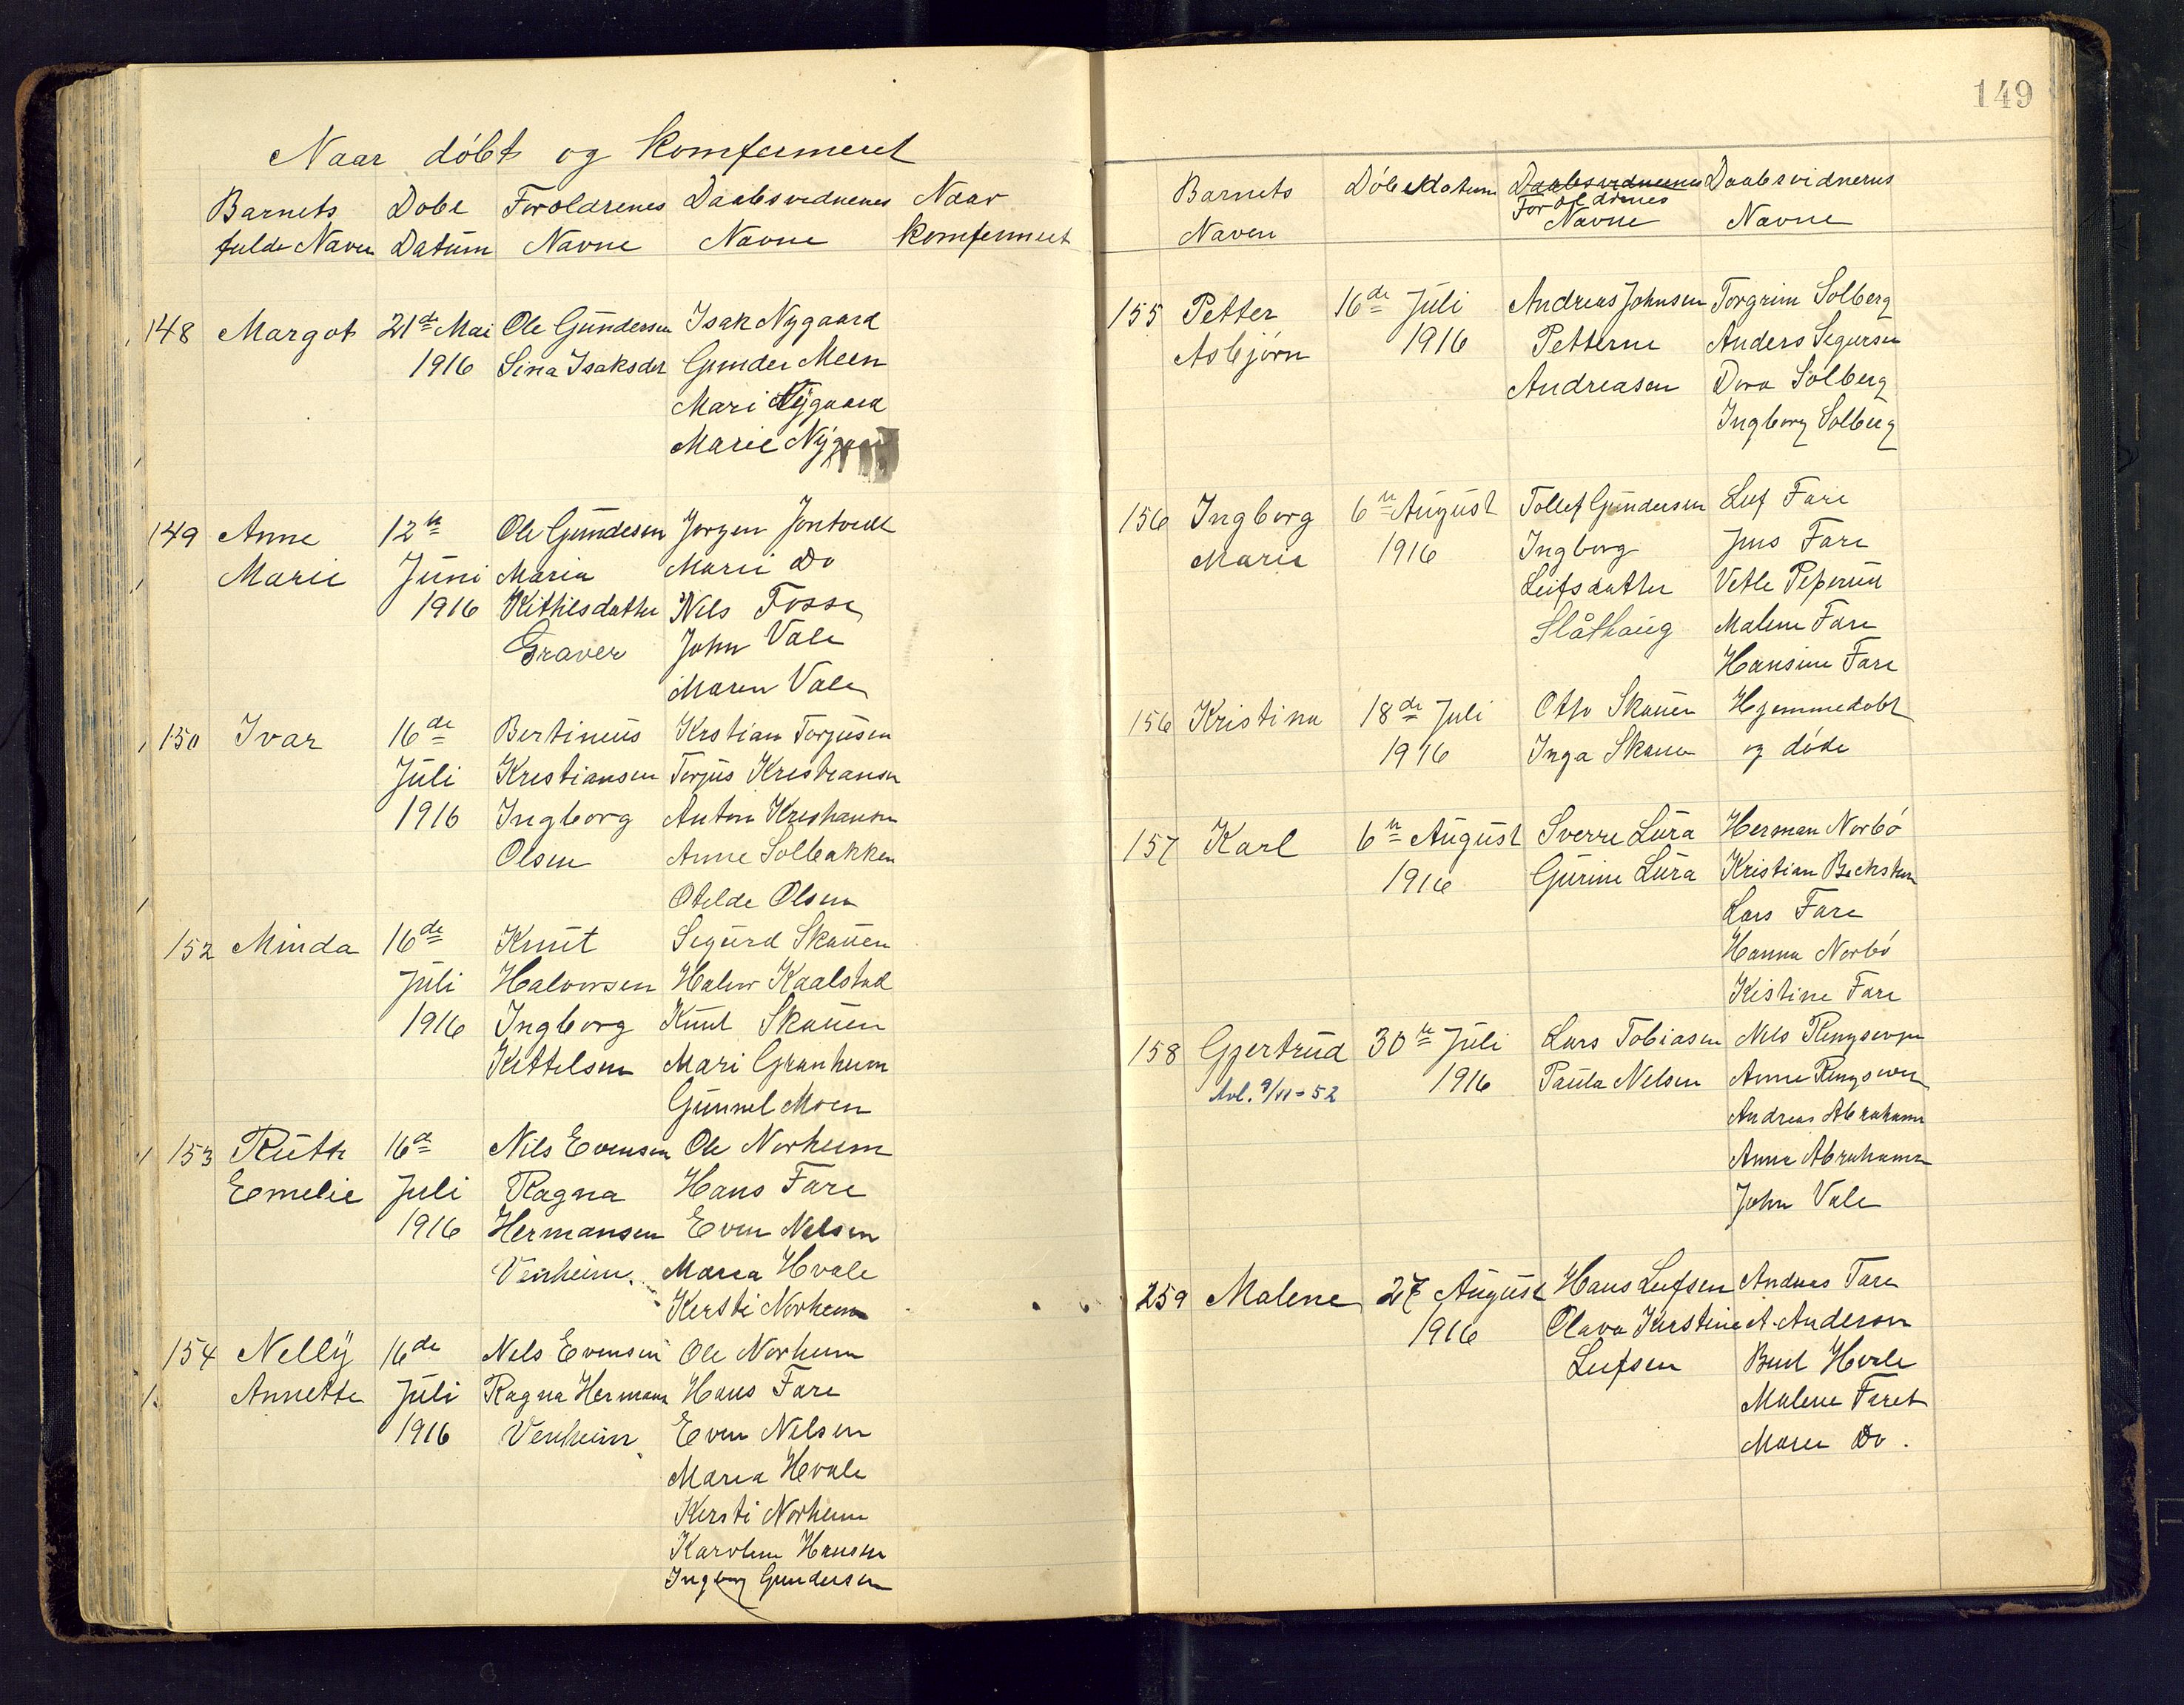 Naar döbt og Komfermeret
Barnets Döbe Foroldrenes Daabsvednenes Naar
fulde Navn Datum Navne Navne Komfermeret
148 Margot 21de Mai Ole Gundersen Isak Nygaard
1916 Sina Isaksdet Gunder Meen
Mari Nygaard
Marie
149 Anne 12te Ole Gundesen Jorgen Jontvedt
Marie Juni Maria Marie Do
1916 Kithilsdatter Nils Fosse
Graver John Vale
Maren Vale
150 Ivar 16de Bertineus Krstian Torjusen
Juli Kristiansen Torjus Kristiansen
1916 Ingborg Anton Kristiansen
Olsen Anne Solbakken
Otelde Olsen
152 Minda 16de Knut Sigurd Skauen
Juli Halvorsen Halvor Kaalstad
1916 Ingborg Knut Skauen
Kettelsen Mari Granheim
Gunnel Moen
153 Ruth 16de Nils Evensen Ole Norheim
Emelie Juli Ragna Hans Fare
1916 Hermansen Even Nelsen
Venheim. Marea Hvale
Kersti Norheim
154 Nelly 16de Nels Evensen Ole Norheim
Annette Juli Ragna Hermans Hans Fare
1916 Venheim Even Nelsen
Marea Hvale
Kersti Norheim
Karoline Hansen
Ingborg Gundersen
149
Barnets Döbeldatum Daabsvidnernes Daabsvidnerns
Foroldrenes
Naven Navne Navne
155 Petter 16de Juli Andreas Johnsen Torgrim Solberg
Asbjörn 1916 Petterne Anders Segursen
Andreasen Dora Solberg
Ingborg Solberg
156 Ingborg 6te August Tollef Gundersen Leif Fare
Marie 1916 Ingborg Jens Fare
Leifsdatter Vetle
Slåthaug Malene Fare
Hansine Fare
156 Kristina 18de Juli Otto Skauen Hjemmedöbt
1916 Inga Skauen og döde
157 Karl 6te August Sverre Lura Herman Norbö
1916 Gurine Lura Kristian
Lars Fare
Hanna Norbö
Kistine Fare
158 Gjertrud 30te Juli Lars Tobiasen Nels
Avl. 9/VI-52 1916 Paula Nelsen Anne
Andreas Abrahams
Anna Abrahams
John Vale
259 Malene 27 August Hans Leifsen Andreas Fare
1916 Olava Kirstine A. Anderson
Leifsen Hvale
Malene Faret
Maren Do.